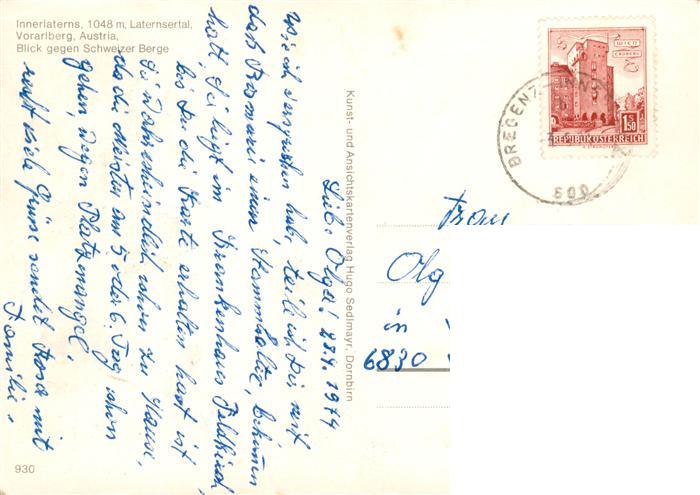 Innerlaterns, 1048 m, Laternsertal,
Vorarlberg, Austria,
Blick gegen Schweizer Berge
Liebe Olga! 28.4.1974
Wie ich versprochen hab, teile ich Dir mit
daß Rosmarie einen Stammhalter, bekommen
hat, Sie liegt im Krankenhaus Feldkirch,
bis Du die Karte erhalten hast ist
Sie wahrscheindlich schon zu Hause,
da die Meisten am 5 oder 6. Tag schon
gehen, wegen Platzmangel,
recht viele Grüsse sendet Rosa mit
Familie,
930
Kunst- und Ansichtskartenverlag Hugo Sedlmayr, Dornbirn
WIEN
ERDBERG
1.50
REPUBLIK ÖSTERREICH
BREGENZ
600
Frau
Olg
in
6830